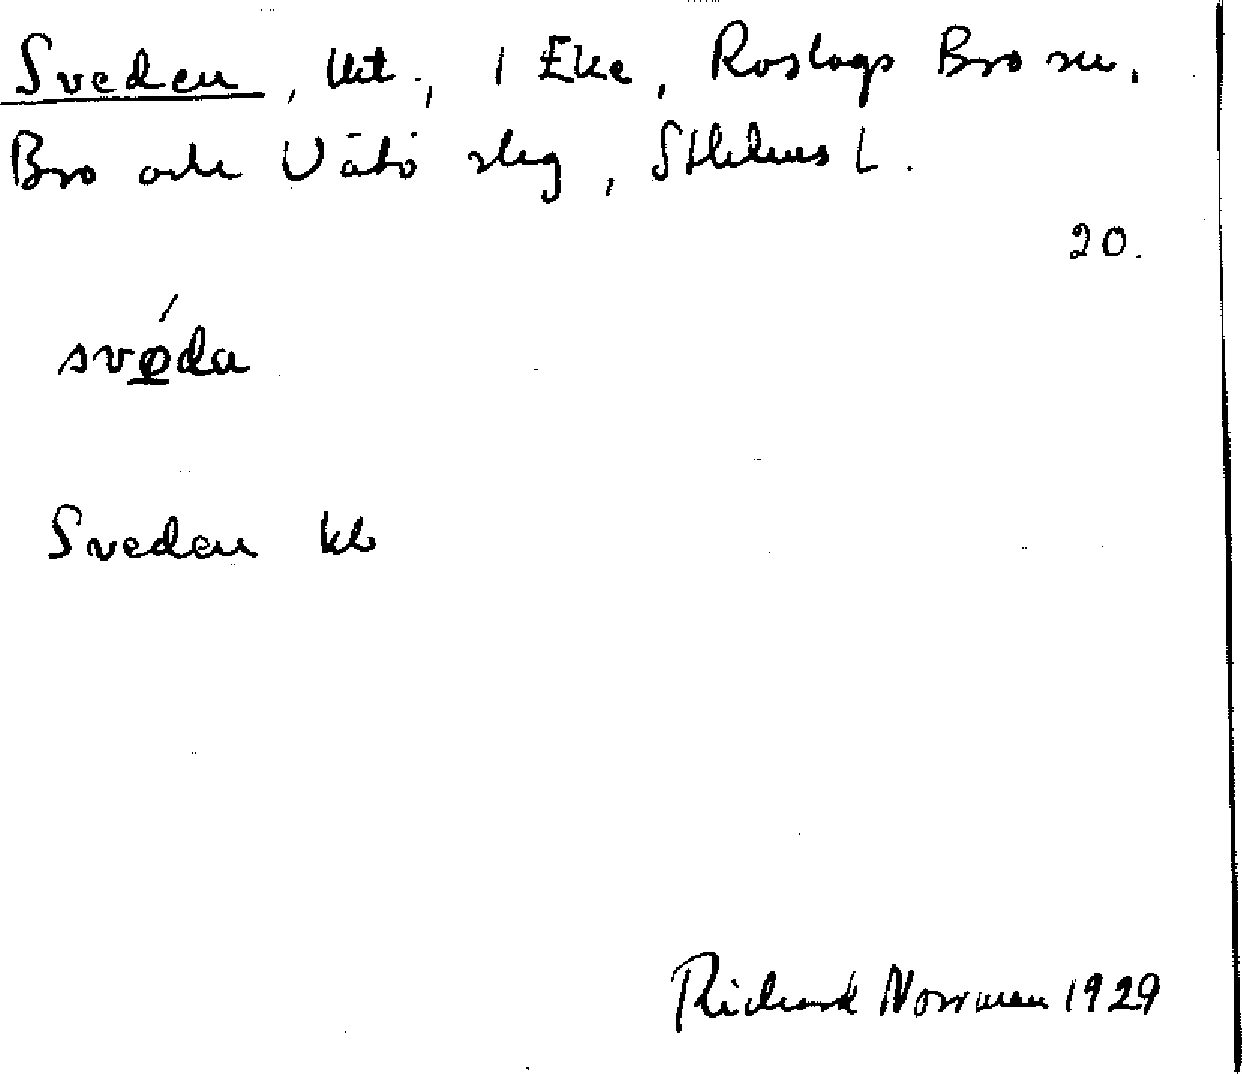 Sveden, lht., 1 Eke, Roslags Bro sn.
Bro och Vätö slag, Sthlms L.
20.
svǿ̲da
Sveden kb
Richard Norrman 1929